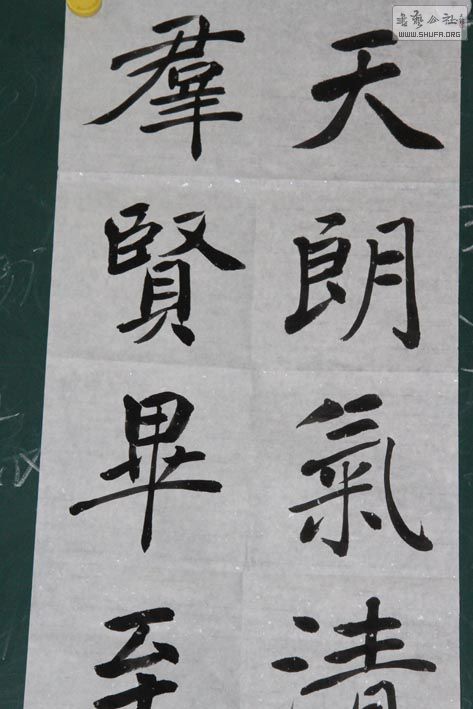 天朗氣清
羣賢畢至
书艺公社
WWW.SHUFA.ORG